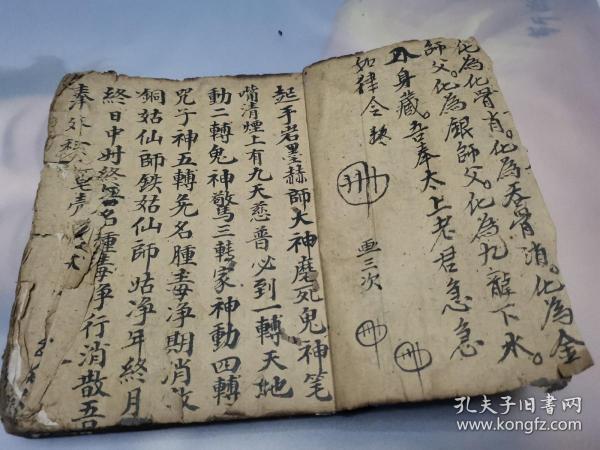 化為化骨肖。化為吞骨消。化為金
師父。化為銀師父。化為九龍下水。
身藏。吾奉太上老君急急
如律令
画三次
起手岩墨赫師大神磨死鬼神笔
嘴清煙上有九天慈普必到一轉天地
動二轉鬼神驚三轉家神動四轉
兕子神五轉免名腫毒净期消散
铜姑仙師铁姑仙師 姑净年終月
終日中时終名腫毒净行消散吾
奉
孔夫子旧书网
www.kongfz.com